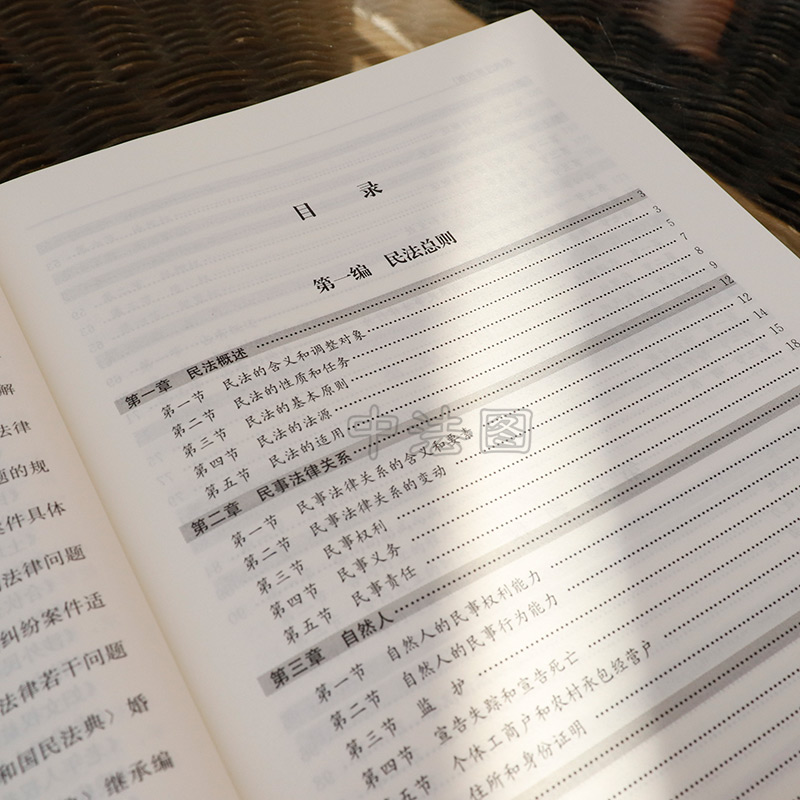 解
法律
题的规
案件具体
法律问题
纠纷案件适
法律若干问题
和国民法典〉婚
继承编
目 录
第一编 民法总则
第一章 民法概述 3
第一节 民法的含义和调整对象 3
第二节 民法的性质和任务 5
第三节 民法的基本原则 7
第四节 民法的法源 8
第五节 民法的适用 9
第二章 民事法律关系 12
第一节 民事法律关系的含义和要素 12
第二节 民事法律关系的变动 14
第三节 民事权利 15
第四节 民事义务 18
第五节 民事责任
第三章 自然人
第一节 自然人的民事权利能力
第二节 自然人的民事行为能力
第三节 监 护
第四节 宣告失踪和宣告死亡
第五节 个体工商户和农村承包经营户
住所和身份证明
中法图